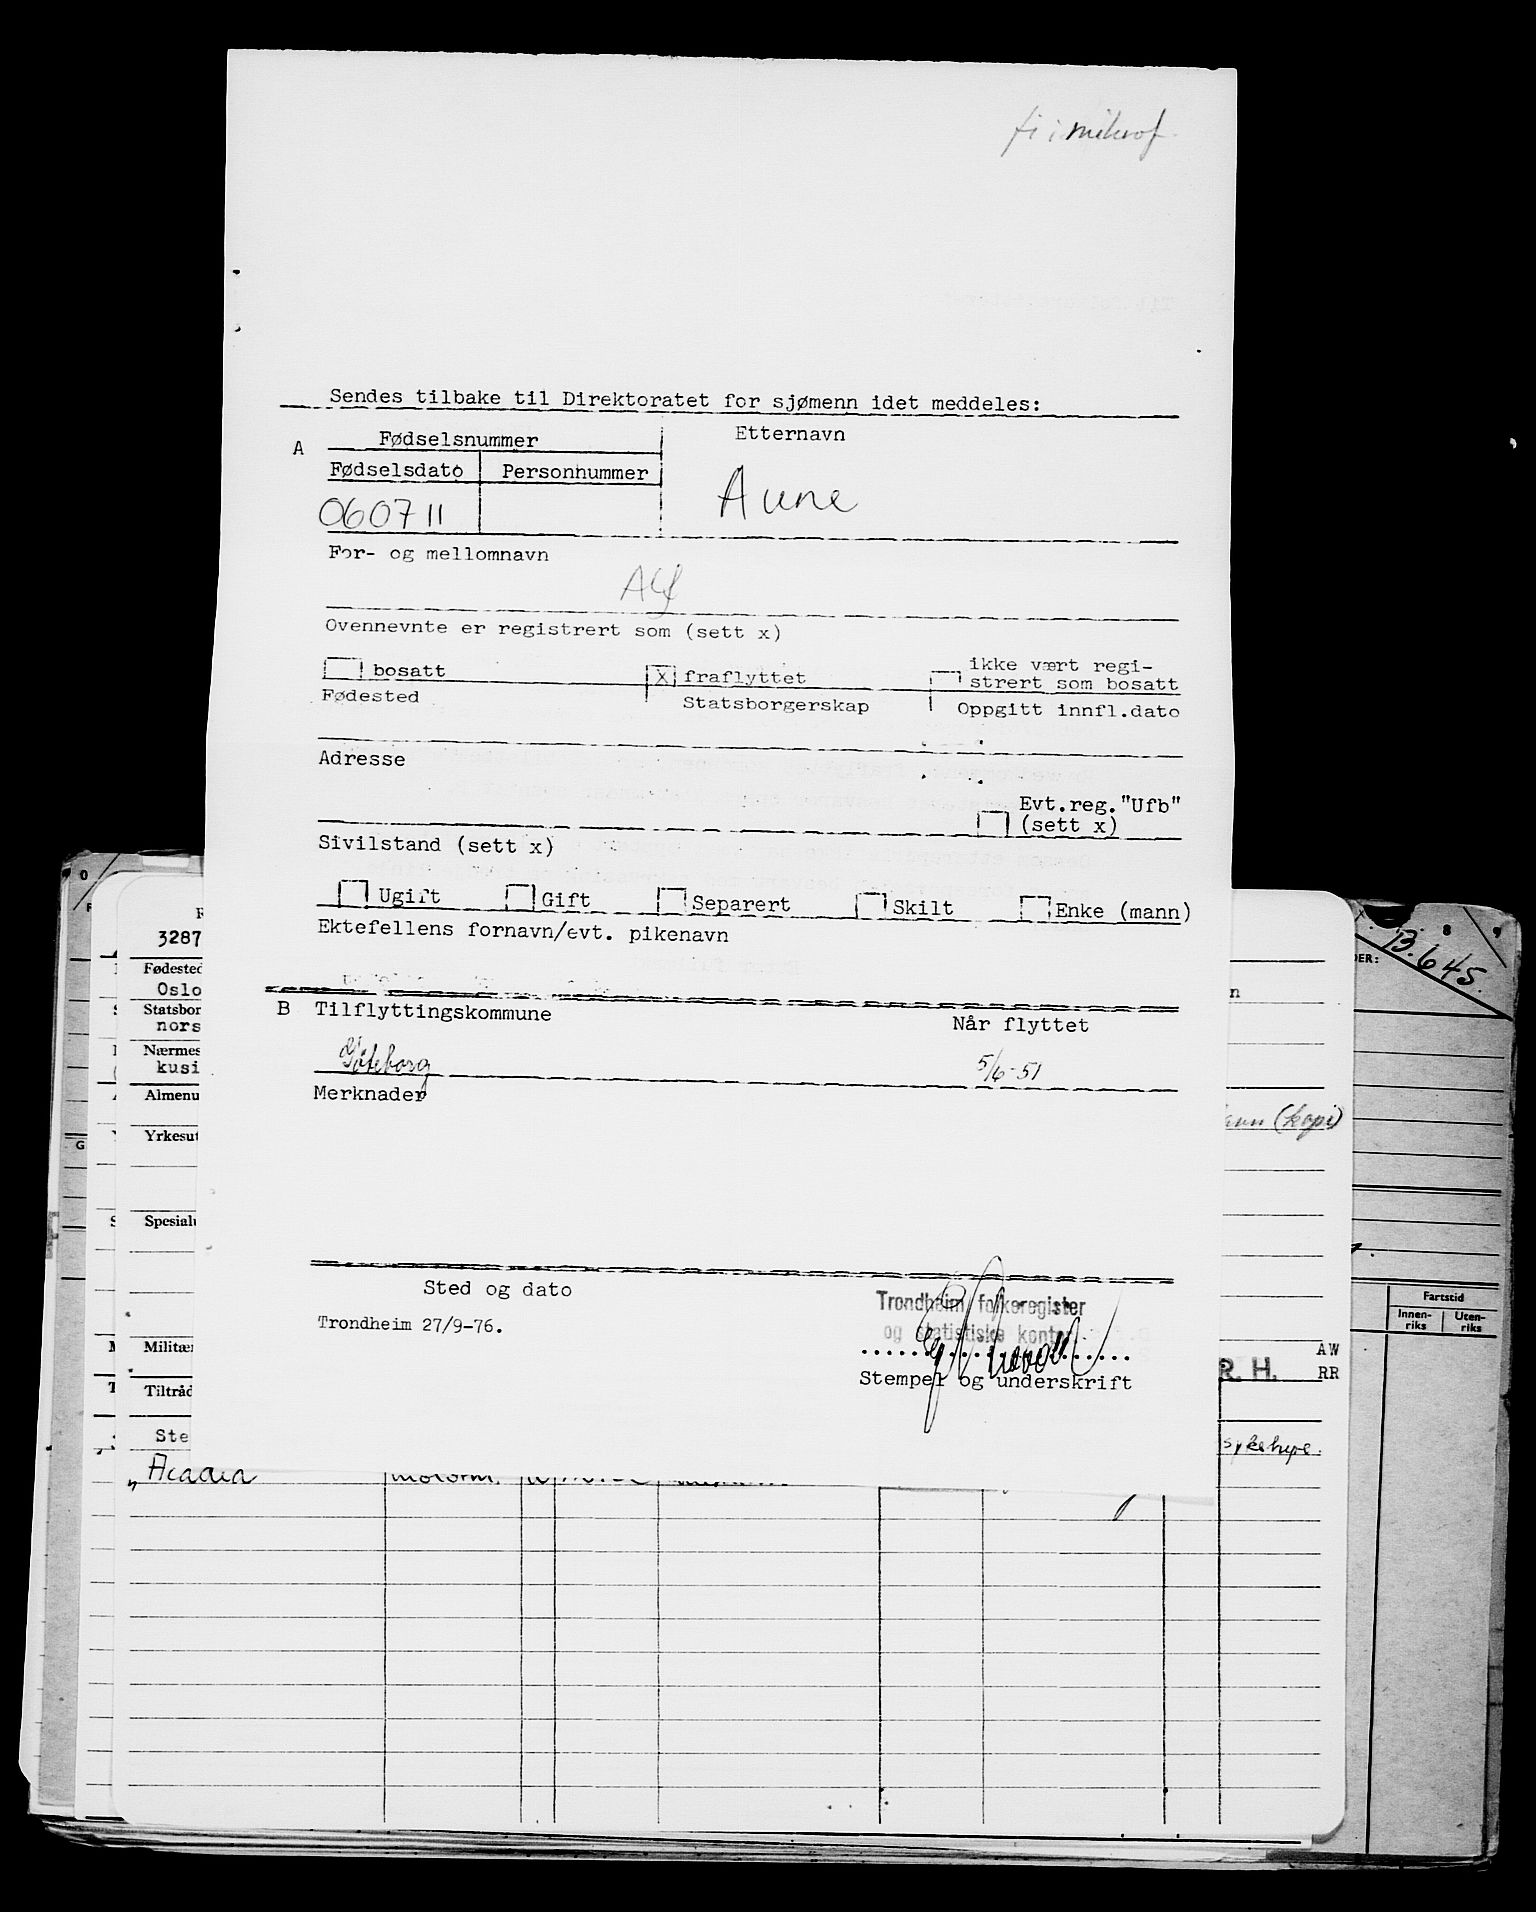 fi i mikrof.
Sendes tilbake til Direktoratet for sjømenn idet meddeles:
A Fødselsnummer Etternavn
Fødselsdato Personnummer
060711 Aune
For- og mellomnavn
Alf
Ovennevnte er registrert som (sett x)
bosatt x fraflyttet ikke vært regi-
strert som bosatt
Fødested Statsborgerskap Oppgitt innfl.dato
Adresse
Evt.reg."Ufb"
(sett x)
Sivilstand (sett x)
Ugift Gift Separert Skilt Enke (mann)
Ektefellens fornavn/evt. pikenavn
B Tilflyttingskommune Når flyttet
Gøteborg 5/6-51
Merknader
Sted og dato
Trondheim folkeregister
og statistiske kontor
Trondheim 27/9-76.
Stempel og underskrift
0
3287
Fødested
Oslo
Statsbor
nors
Nærmes
kusi
Almenu
Yrkesut
G
Spesialu
Militær
Tiltråd
Ste
" Acadia
8 9
DER:
B.645.
n
(kopi)
Fartstid
Innen-
riks
Uten-
riks
AW
R. H. RR